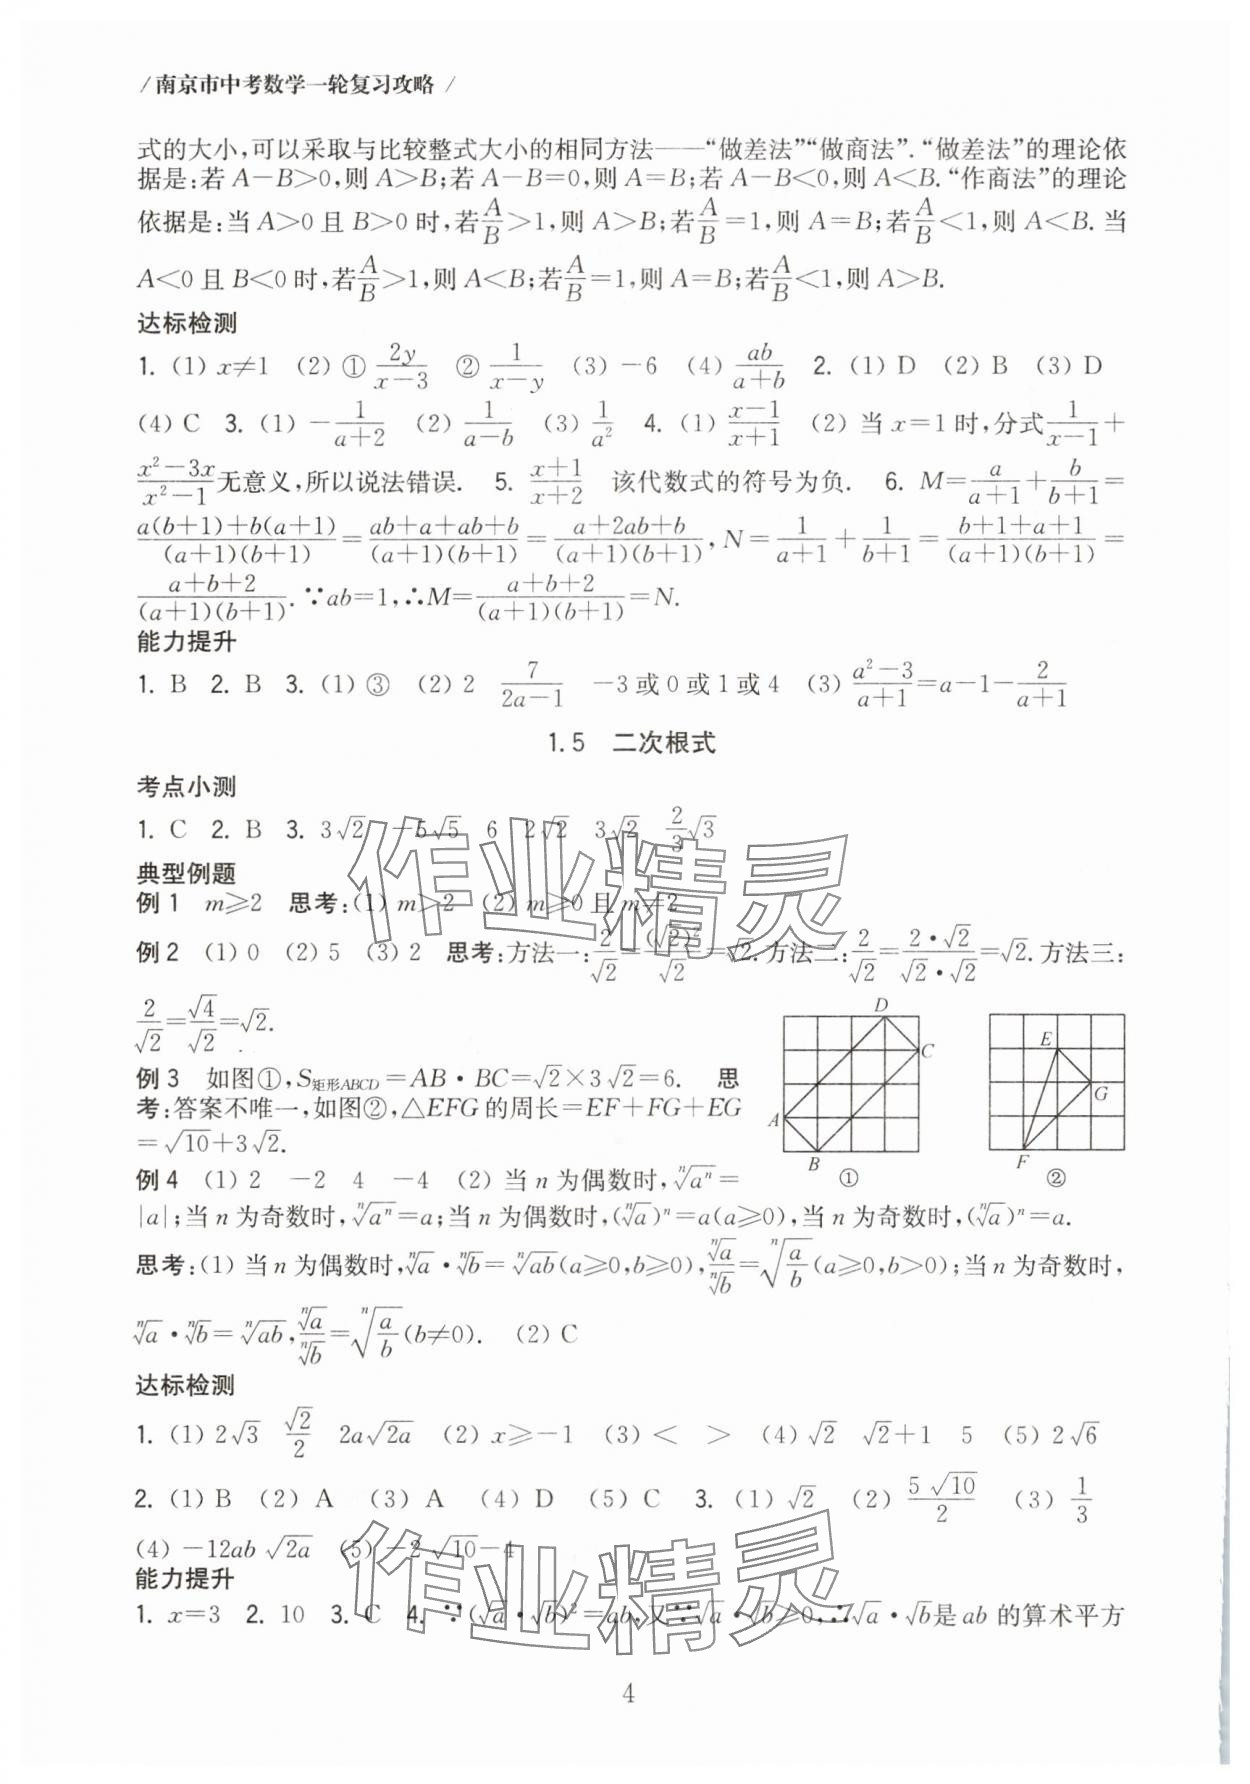 /南京市中考数学一轮复习攻略/
式的大小,可以采取与比较整式大小的相同方法——“做差法”“做商法”.“做差法”的理论依
据是:若 A−B>0,则 A>B;若 A−B=0,则 A=B;若 A−B<0,则 A<B.“作商法”的理论
依据是:当 A>0 且 B>0 时,若 A/B>1,则 A>B;若 A/B=1,则 A=B;若 A/B<1,则 A<B. 当
A<0 且 B<0 时,若 A/B>1,则 A<B;若 A/B=1,则 A=B;若 A/B<1,则 A>B.
达标检测
1. (1) x≠1 (2) ① 2y/(x−3) ② 1/(x−y) (3) −6 (4) ab/(a+b) 2. (1) D (2) B (3) D
(4) C 3. (1) −1/(a+2) (2) 1/(a−b) (3) 1/a² 4. (1) (x−1)/(x+1) (2) 当 x=1 时,分式 1/(x−1)+
(x²−3x)/(x²−1) 无意义,所以说法错误. 5. (x+1)/(x+2) 该代数式的符号为负. 6. M=a/(a+1)+b/(b+1)=
(a(b+1)+b(a+1))/((a+1)(b+1))=(ab+a+ab+b)/((a+1)(b+1))=(a+2ab+b)/((a+1)(b+1)), N=1/(a+1)+1/(b+1)=(b+1+a+1)/((a+1)(b+1))=
(a+b+2)/((a+1)(b+1)). ∵ab=1,∴M=(a+b+2)/((a+1)(b+1))=N.
能力提升
1. B 2. B 3. (1) ③ (2) 2 7/(2a−1) −3 或 0 或 1 或 4 (3) (a²−3)/(a+1)=a−1−2/(a+1)
1.5 二次根式
考点小测
1. C 2. B 3. 3√2 −5√5 6 2√2 3√2 2/3√3
典型例题
例 1 m≥2 思考:(1) m>2 (2) m≥0 且 m≠2
例 2 (1) 0 (2) 5 (3) 2 思考:方法一:2/√2=(√2)²/√2=√2. 方法二:2/√2=(2·√2)/(√2·√2)=√2. 方法三:
2/√2=√4/√2=√2.
例 3 如图①,S矩形ABCD=AB·BC=√2×3√2=6. 思
考:答案不唯一,如图②,△EFG 的周长=EF+FG+EG
=√10+3√2.
D
C
A
B
①
E
G
F
②
例 4 (1) 2 −2 4 −4 (2) 当 n 为偶数时,ⁿ√aⁿ=
|a|;当 n 为奇数时,ⁿ√aⁿ=a;当 n 为偶数时,(ⁿ√a)ⁿ=a(a≥0),当 n 为奇数时,(ⁿ√a)ⁿ=a.
思考:(1) 当 n 为偶数时,ⁿ√a·ⁿ√b=ⁿ√ab(a≥0,b≥0),ⁿ√a/ⁿ√b=ⁿ√(a/b)(a≥0,b>0);当 n 为奇数时,
ⁿ√a·ⁿ√b=ⁿ√ab,ⁿ√a/ⁿ√b=ⁿ√(a/b)(b≠0). (2) C
达标检测
1. (1) 2√3 √2/2 2a√2a (2) x≥−1 (3) < > (4) √2 √2+1 5 (5) 2√6
2. (1) B (2) A (3) A (4) D (5) C 3. (1) √2 (2) 5√10/2 (3) 1/3
(4) −12ab√2a (5) −2√10−4
能力提升
1. x=3 2. 10 3. C 4. ∵(√a·√b)²=ab,又∵√a·√b≥0,∴√a·√b是 ab 的算术平方
4
作业精灵
作业精灵